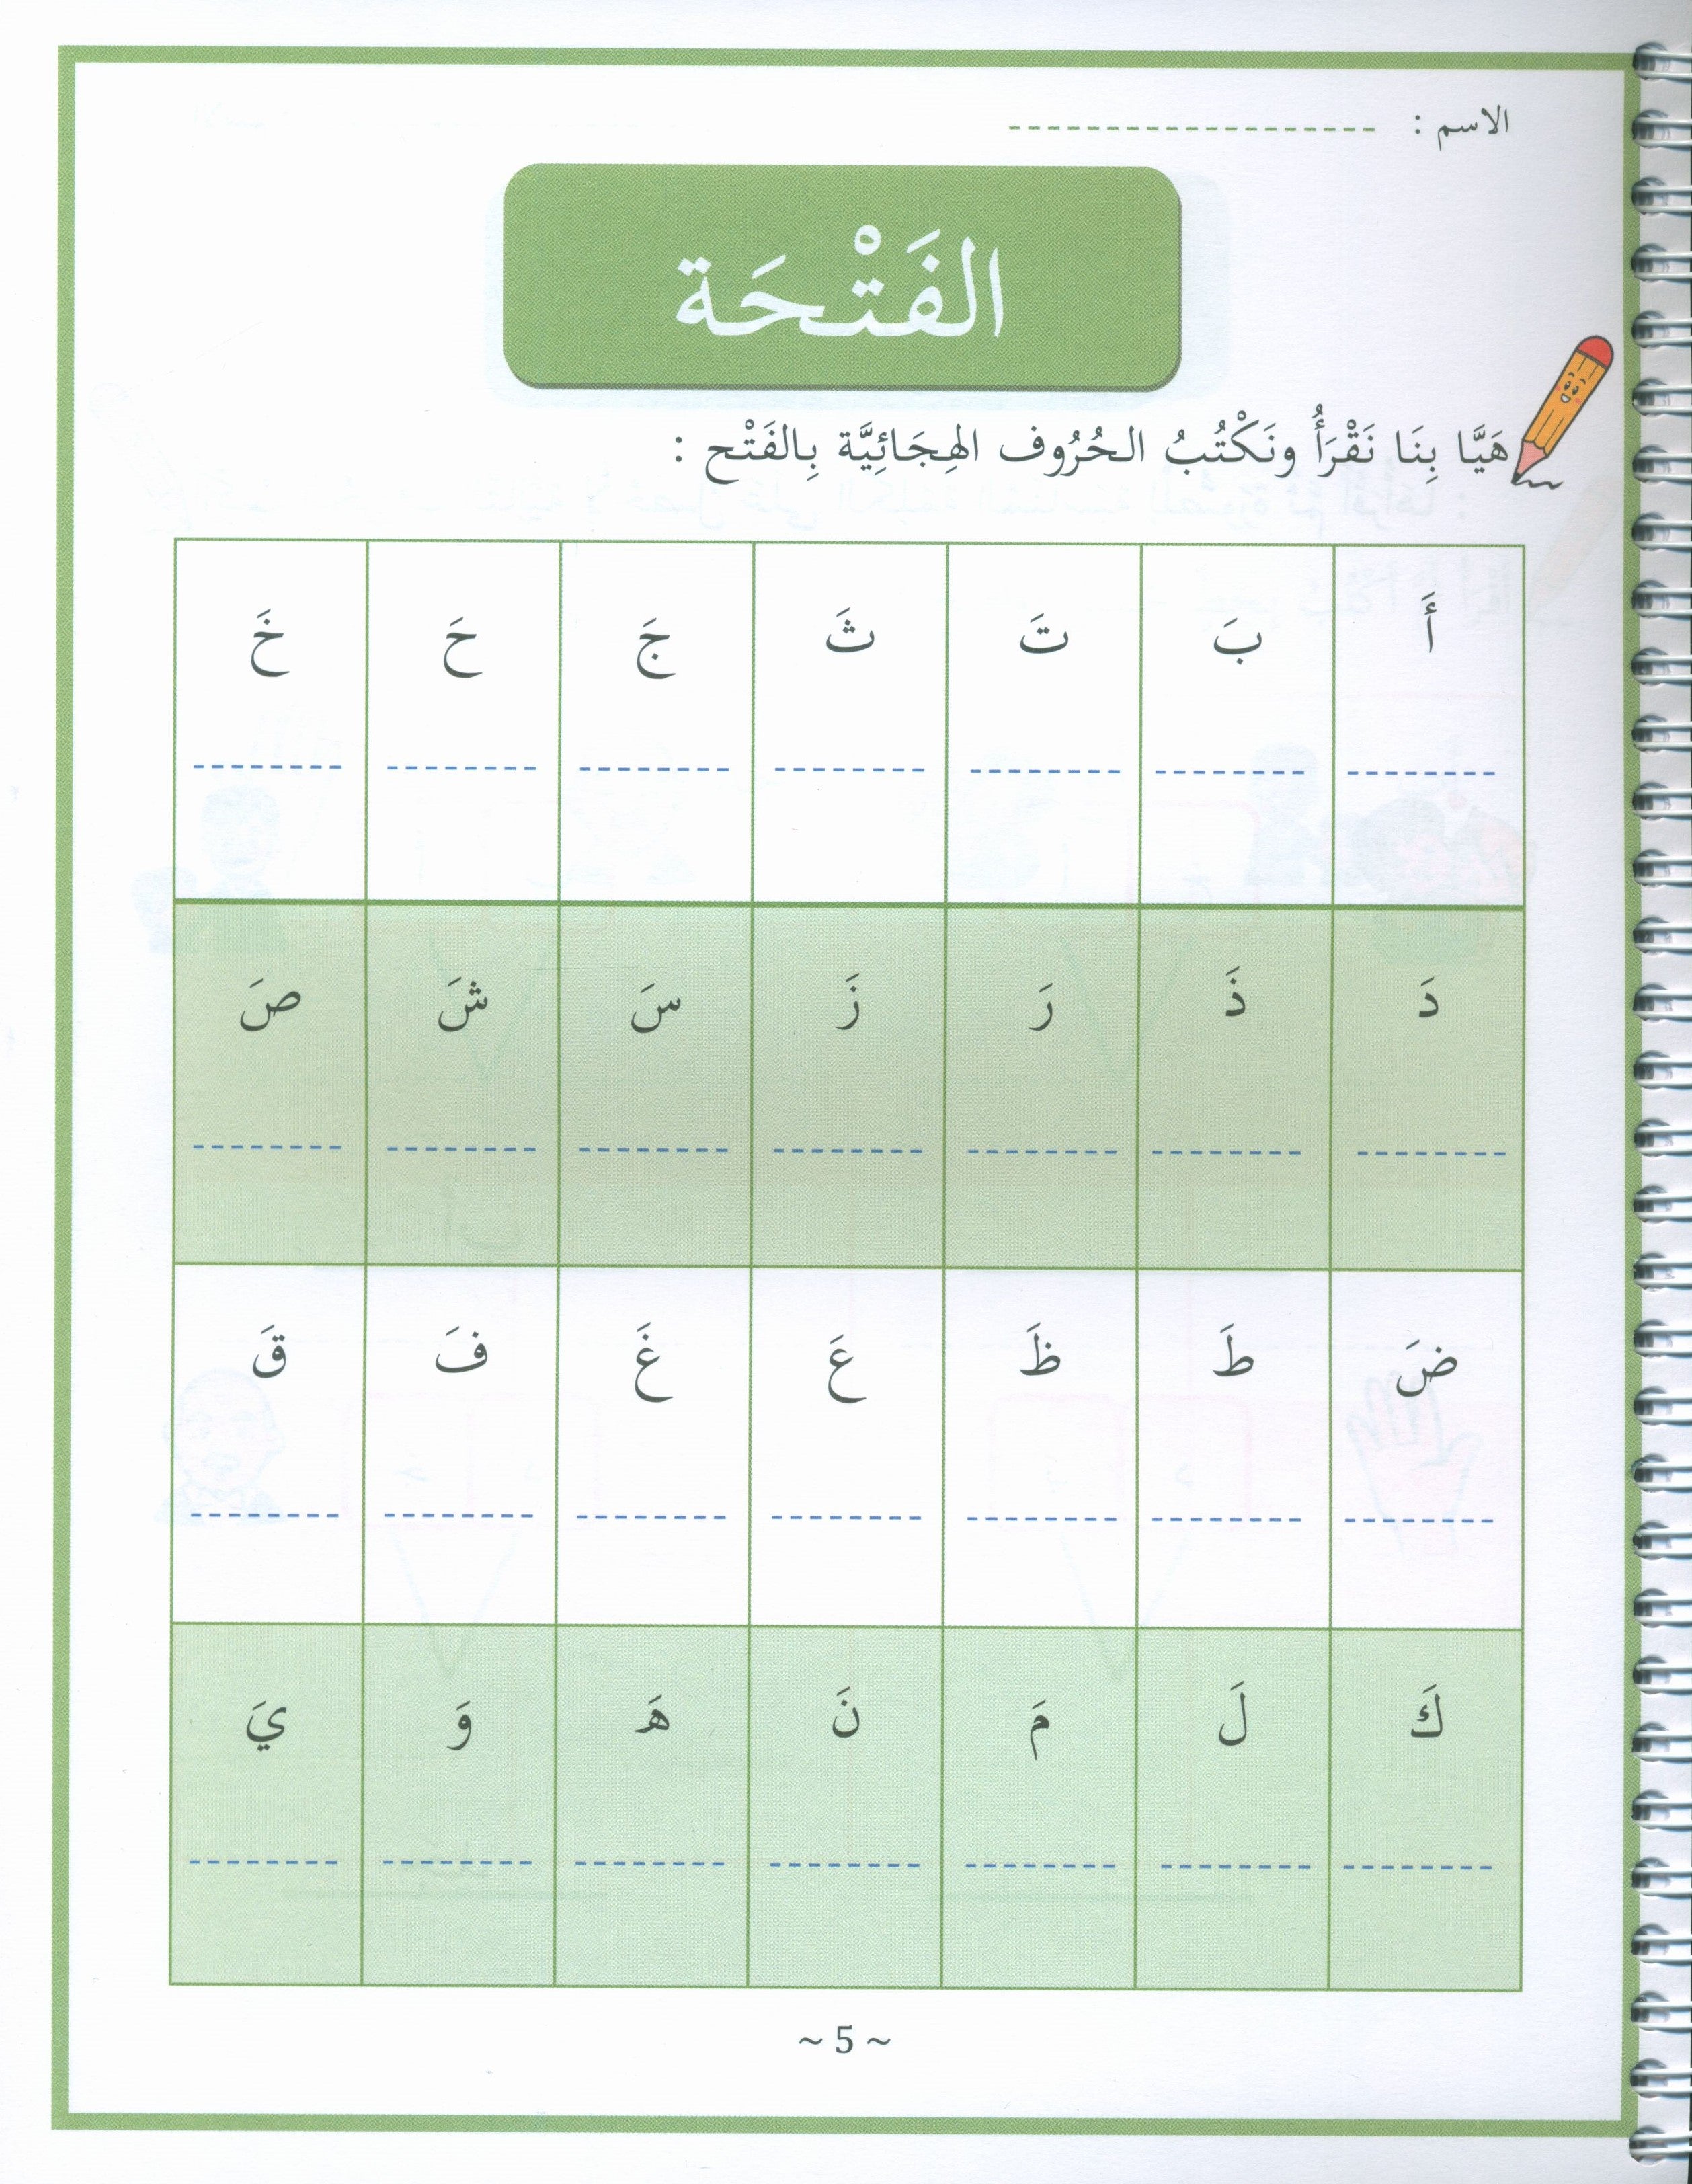 الاسم :
الفَتْحَة
هَيَّا بِنَا نَقْرَأُ ونَكْتُبُ الحُرُوف الهِجَائِيَّة بِالفَتْح :
أَ بَ تَ ثَ جَ حَ خَ
دَ ذَ رَ زَ سَ شَ صَ
ضَ طَ ظَ عَ غَ فَ قَ
كَ لَ مَ نَ هَ وَ يَ
~ 5 ~